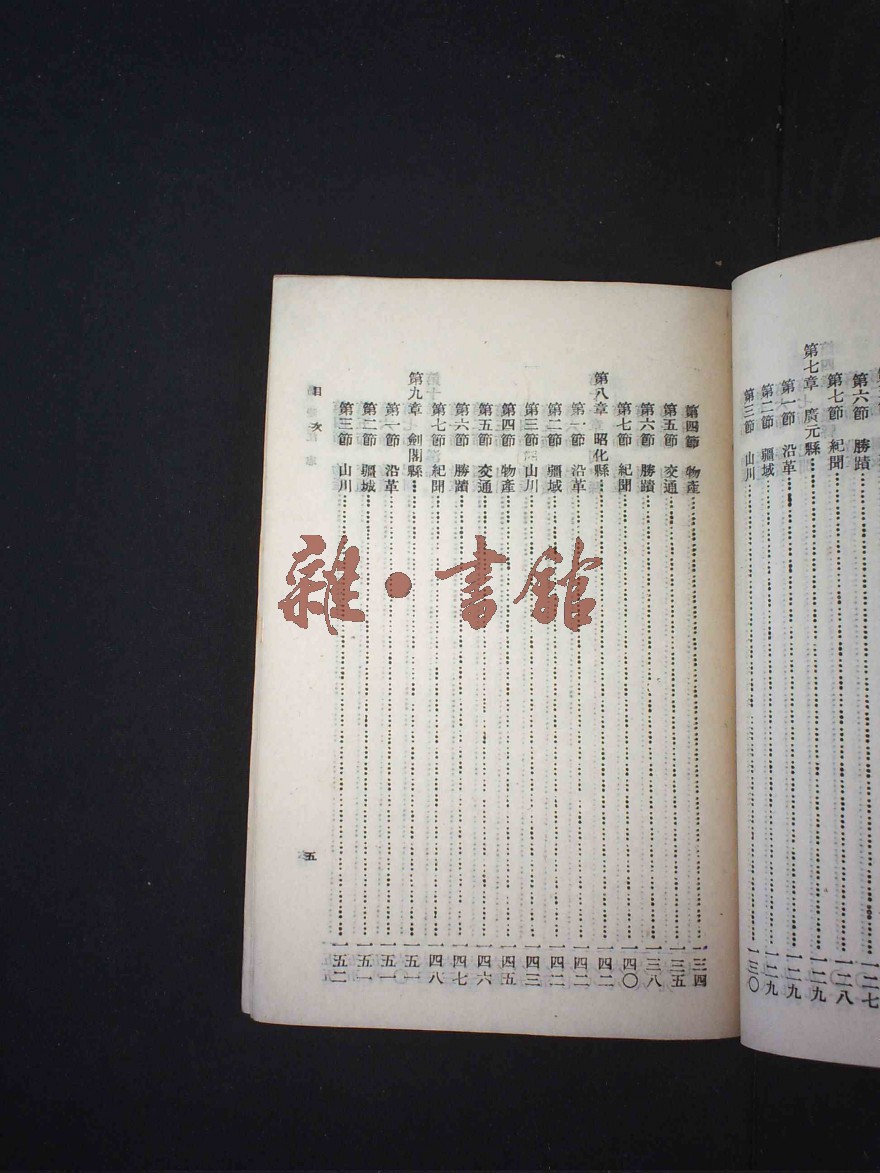 第六節 勝蹟……一二七
第七節 紀聞……一二八
第七章 廣元縣……一二九
第一節 沿革……一二九
第二節 疆域……一二九
第三節 山川……一三〇
第四節 物產……一三四
第五節 交通……一三五
第六節 勝蹟……一三八
第七節 紀聞……一四〇
第八章 昭化縣……一四二
第一節 沿革……一四二
第二節 疆域……一四二
第三節 山川……一四三
第四節 物產……一四五
第五節 交通……一四六
第六節 勝蹟……一四七
第七節 紀聞……一四八
第九章 劍閣縣……一五一
第一節 沿革……一五一
第二節 疆域……一五一
第三節 山川……一五二
目次 五
雜·書館